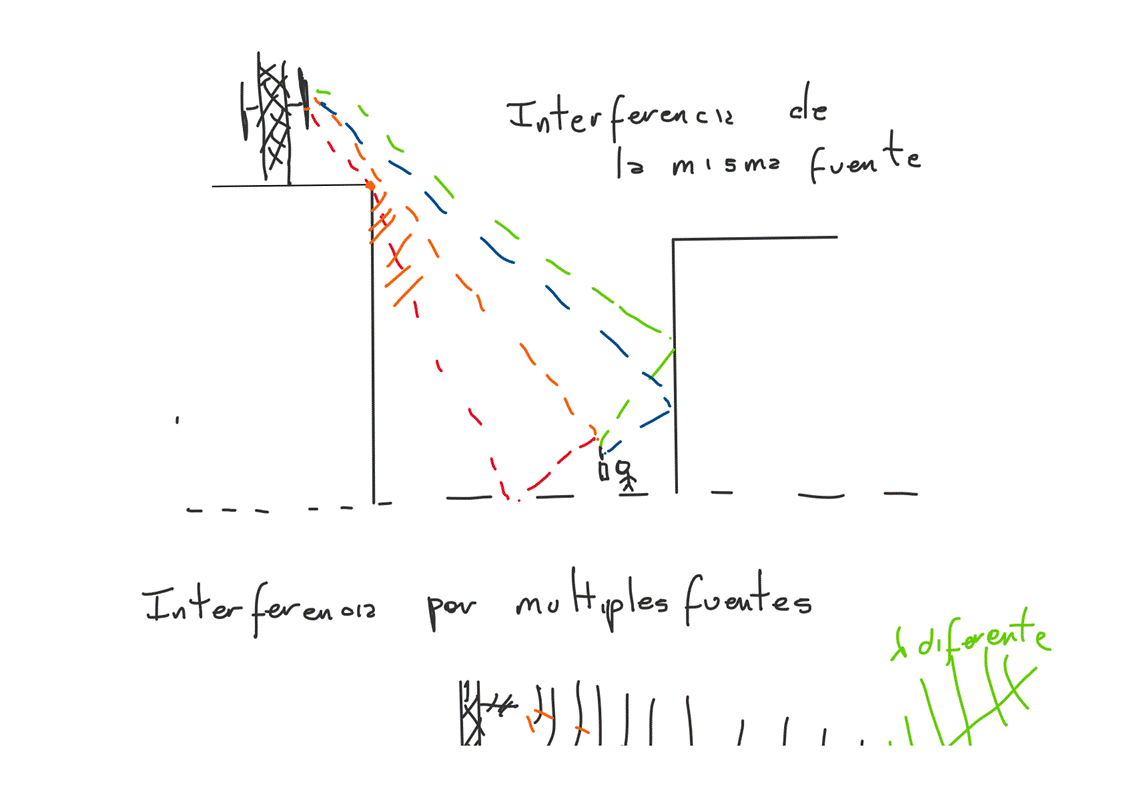 Interferencia de
la misma fuente
Interferencia por multiples fuentes
λ diferente